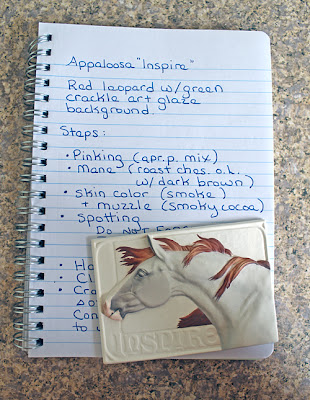 Appaloosa "Inspire"
Red leopard w/green
crackle art glaze
background.
Steps:
• Pinking (apr.p. mix)
• Mane (roast ches. o.k.
w/dark brown)
• skin color (smoke)
+ muzzle (smoky cocoa)
• Spotting
Do NOT
• Ho
• Cl
• Cra
Con
to
Inspire